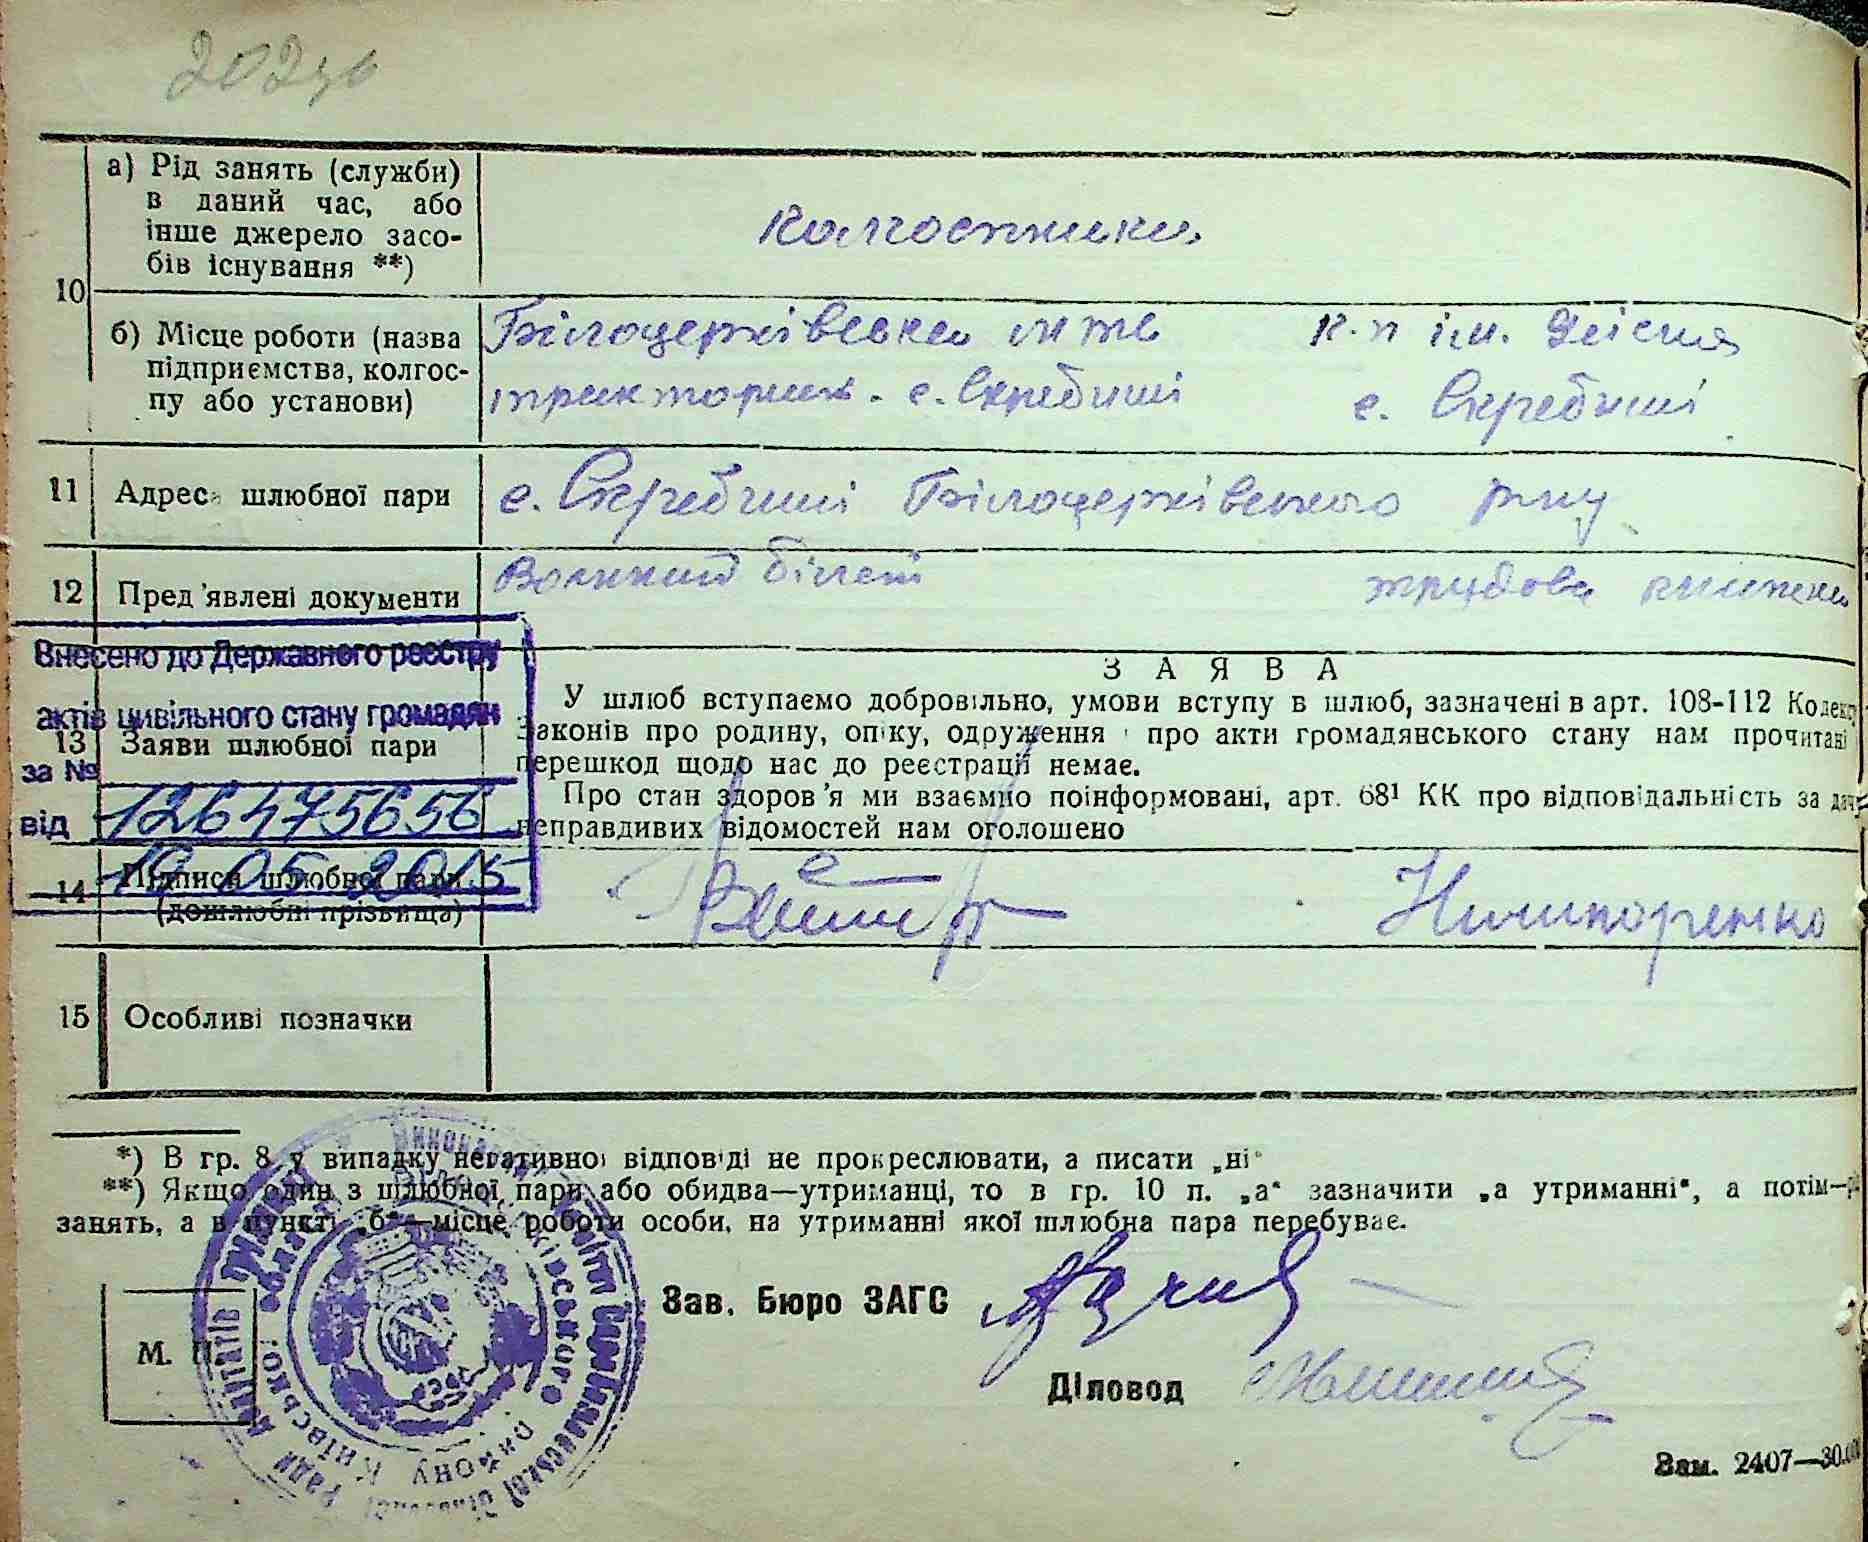 а) Рід занять (служби)
в даний час, або
інше джерело засо-
бів існування **)
колгоспники
10
б) Місце роботи (назва
підприємства, колгос-
пу або установи)
Білоцерківська МТС к-п ім.
тракторист. с. Скребиші с. Скребиші
11 Адреса шлюбної пари
с. Скребиші Білоцерківського р-ну
12 Пред'явлені документи
Воєнний білет трудова книжка
Внесено до Державного реєстру
актів цивільного стану громадян
за № 126475656
від 19.05.2015
13 Заяви шлюбної пари
ЗАЯВА
У шлюб вступаємо добровільно, умови вступу в шлюб, зазначені в арт. 108-112 Кодексу
законів про родину, опіку, одруження і про акти громадянського стану нам прочитані
перешкод щодо нас до реєстрації немає.
Про стан здоров'я ми взаємно поінформовані, арт. 68¹ КК про відповідальність за дач
неправдивих відомостей нам оголошено
14 Підписи шлюбної пари
(дошлюбні прізвища)
Ничипоренко
15 Особливі позначки
*) В гр. 8 у випадку негативної відповіді не прокреслювати, а писати „ні“
**) Якщо один з шлюбної пари або обидва—утриманці, то в гр. 10 п. „а“ зазначити „а утриманні“, а потім—р
занять, а в пункті „б“—місце роботи особи, на утриманні якої шлюбна пара перебуває.
Зав. Бюро ЗАГС
М. П.
Діловод
Зам. 2407—30.000